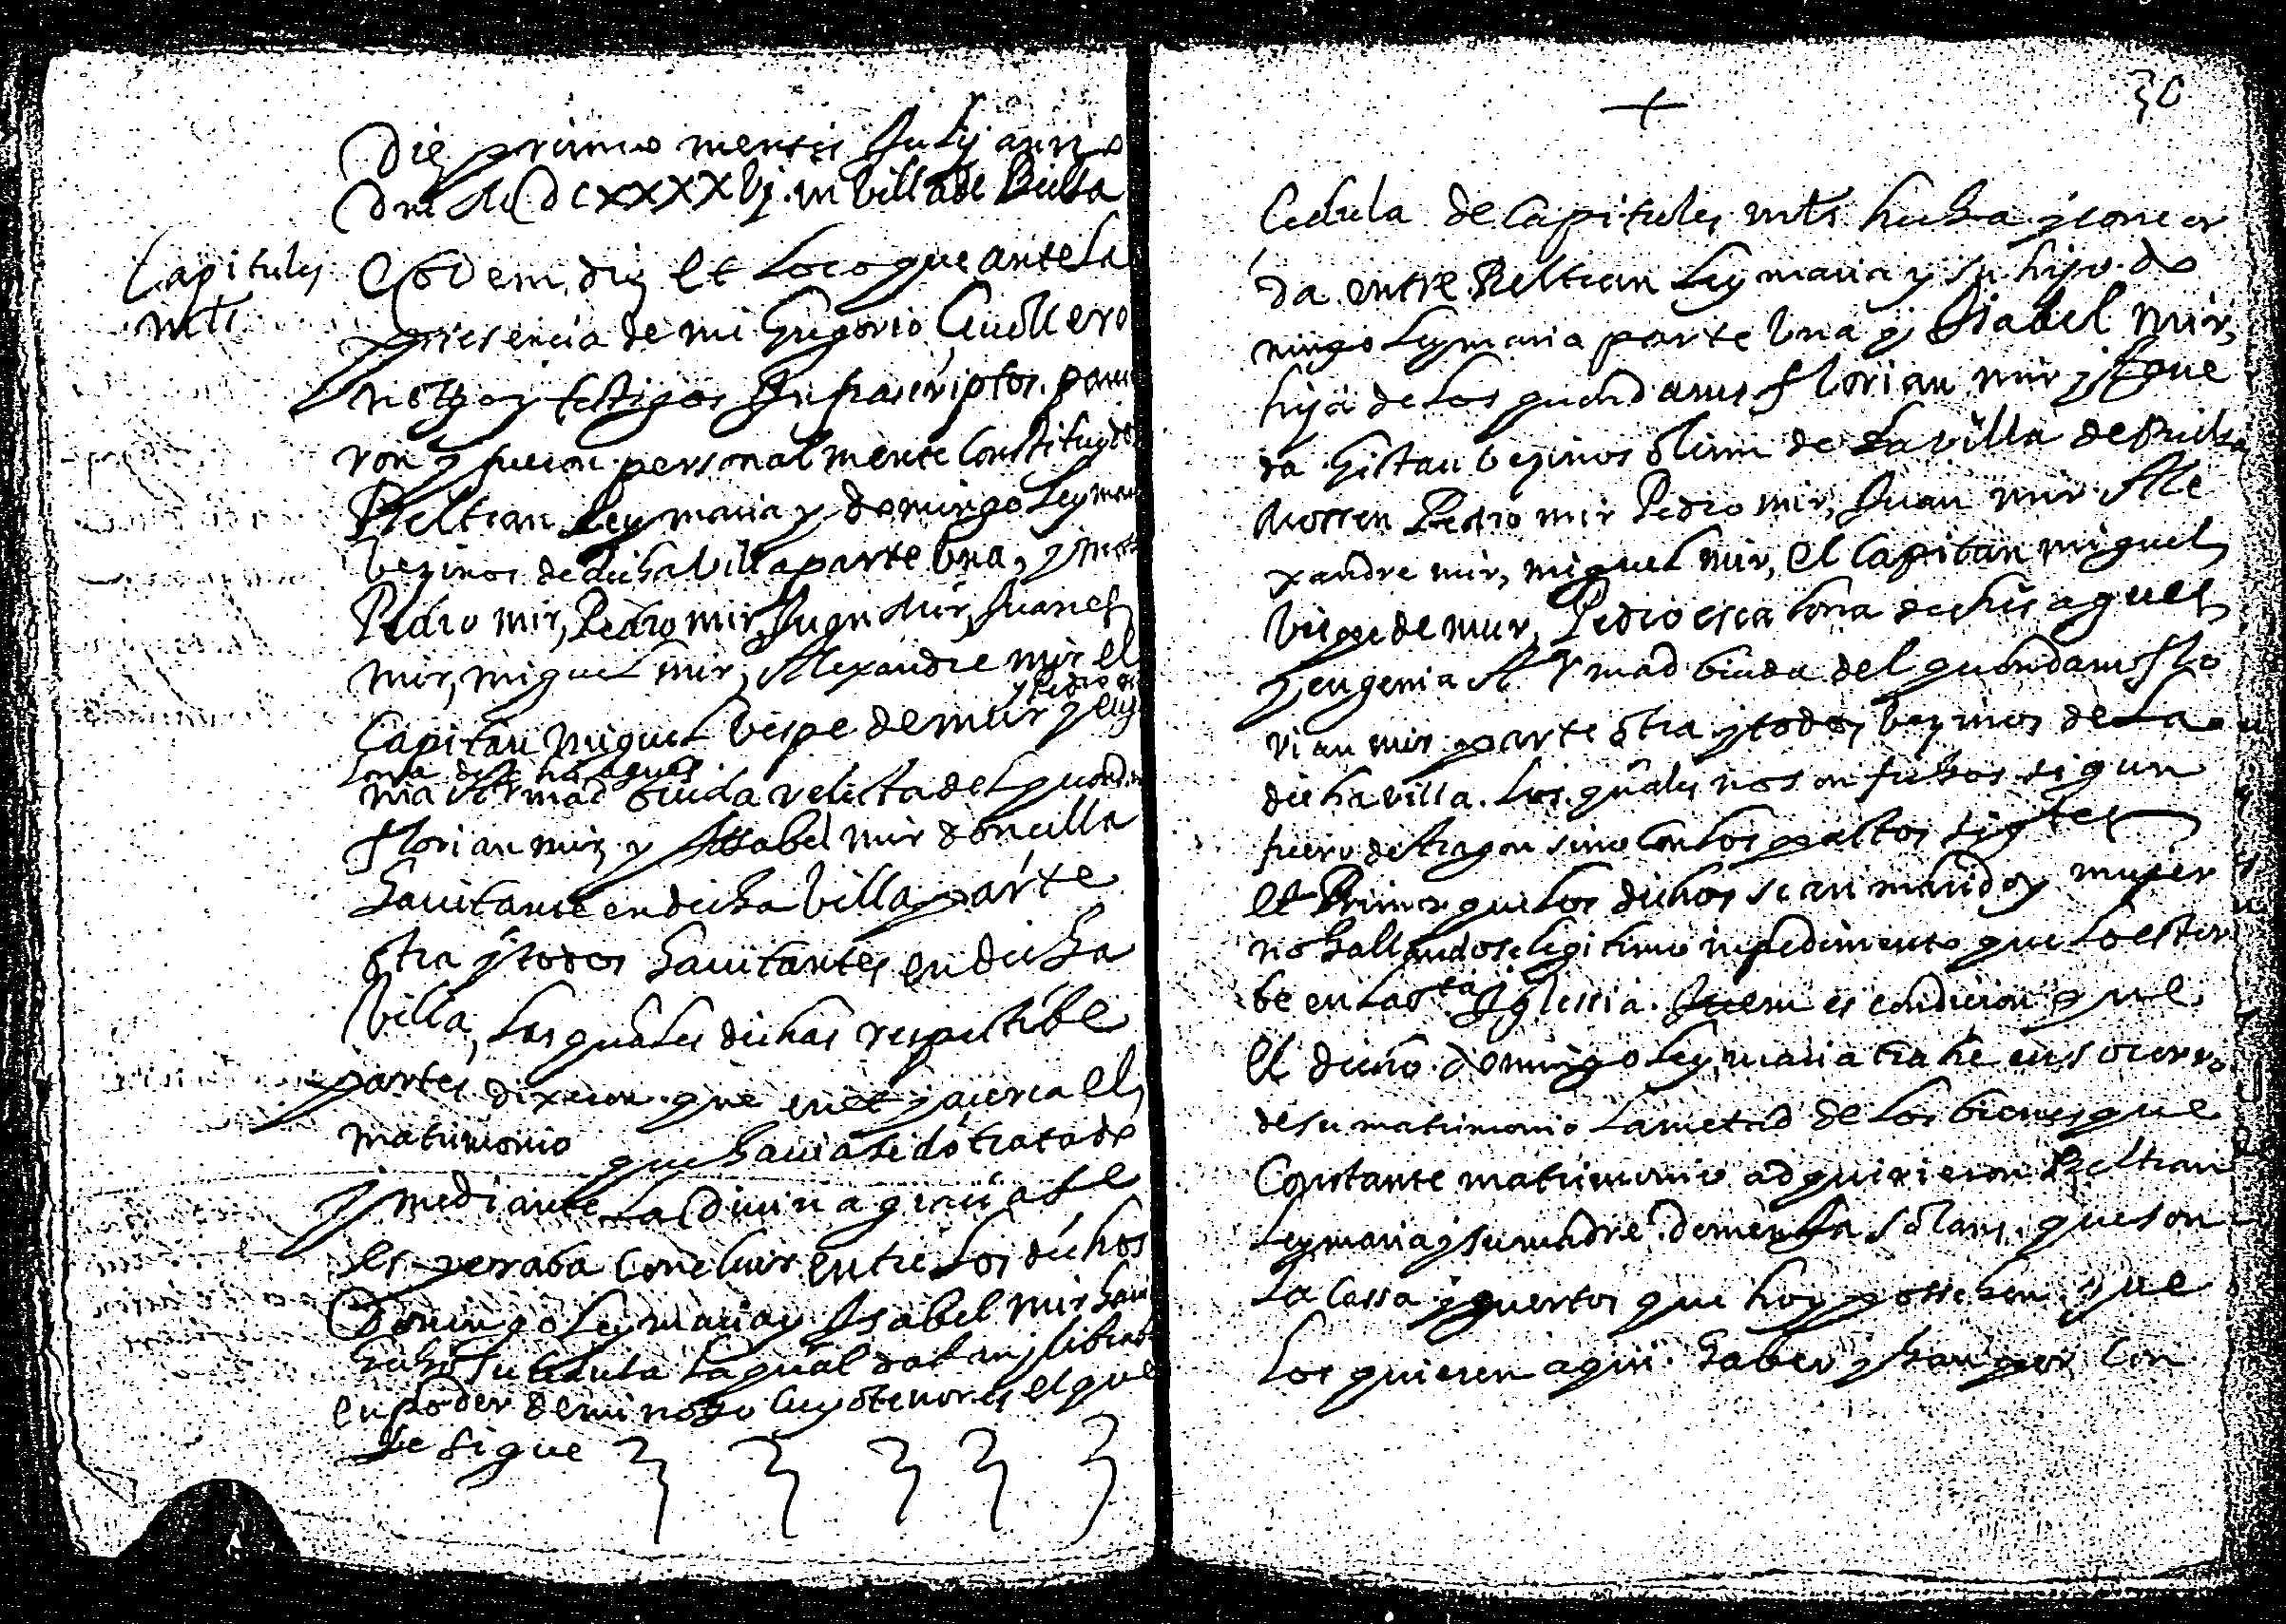 Die primo mensis Julij anno
Dni MDCXXXXVj. in villa de Bielsa
Capitules
mts
Eodem die et Loco que ante la
presencia de mi Gregorio
notº y testigos Infrascriptos. parecie
ron y fueron personalmente Constituydos
Beltran Leymaria y domingo Leymaria
vezinos de dicha villa parte vna, y mossen
Pedro mir, Pedro mir, Juan Mir, Juan
mir, miguel mir, Alexandre mir el
y Pedro es
Capitan Miguel Vispe de mur y euge
Lona de
nia mad biuda relicta del quondam
florian mir, y Issabel mir doncella
hauitante en dicha villa parte
otra y todos hauitantes en dicha
Villa, Las quales dichas respectibe
partes dixeron que en et y acerca el
matrimonio que hauia sido tratado
y mediante La Diuina gracia se
es peraba Concluir entre Los dichos
Domingo Leymaria y Isabel mir hauian
hecho su cedula La qual daban y libraban
en poder de mi notº cuyo tenor es el que
se sigue
30
Cedula de Capitules mts hecha y concor
da entre Beltran Leymaria y su hijo do
mingo Leymaria parte vna y Isabel mir,
hija de los quondams florian mir y
da Gistau vezinos olim de La villa de Bielsa
Mossen Pedro mir Pedro mir, Juan mir Ale
xandre mir, miguel mir, el Capitan miguel
Vispe de mur, Pedro esca lona
y eugenia mad biuda del quondam flo
rian mir parte otra y todos vezinos de La
dicha villa. Los quales no son fechos sigun
fuero de Aragon sino con los pactos sigtes
et Primo que los dichos sean marido y muger
no hallandose legitimo inpedimento que lo estor
be en la sta Iglessia. Item es condicion que
el dicho domingo Leymaria trahe en socorro
de su matrimonio La metad de los bienes que
Constante matrimonio adquirieron Beltran
Leymaria y su madre domenja Solans. que son
La Cassa y guertos que hoy possehen, que
Los quieren aqui haber y han por Con